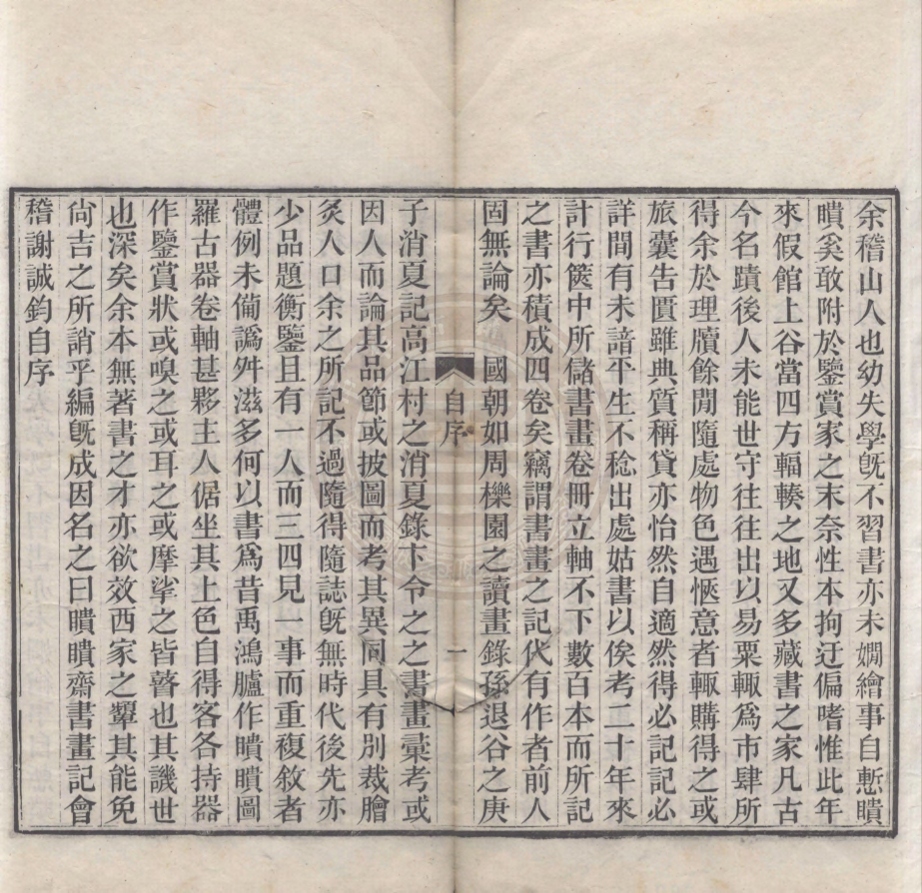 余稽山人也幼失學旣不習書亦未嫺繪事自慙瞶
瞶奚敢附於鑒賞家之末奈性本拘迂偏嗜惟此年
來假館上谷當四方輻輳之地又多藏書之家凡古
今名蹟後人未能世守往往出以易粟輙爲市肆所
得余於理牘餘閒隨處物色遇愜意者輙購得之或
旅囊告匱雖典質稱貸亦怡然自適然得必記記必
詳閒有未諳平生不稔出處姑書以俟考二十年來
計行篋中所儲書畫卷冊立軸不下數百本而所記
之書亦積成四卷矣竊謂書畫之記代有作者前人
固無論矣　國朝如周櫟園之讀畫錄孫退谷之庚
自序
一
子消夏記高江村之消夏錄卞令之之書畫彙考或
因人而論其品節或披圖而考其異同具有別裁膾
炙人口余之所記不過隨得隨誌旣無時代後先亦
少品題衡鑒且有一人而三四見一事而重複敘者
體例未備譌舛滋多何以書爲昔禹鴻臚作瞶瞶圖
羅古器卷軸甚夥主人倨坐其上色自得客各持器
作鑒賞狀或嗅之或耳之或摩挲之皆瞽也其譏世
也深矣余本無著書之才亦欲效西家之顰其能免
尙吉之所誚乎編旣成因名之曰瞶瞶齋書畫記會
稽謝誠鈞自序